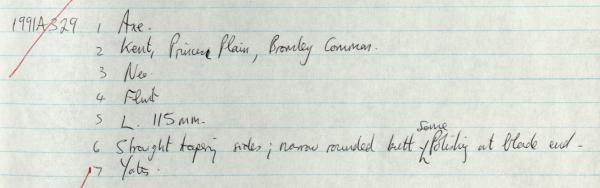 1991A329 1 Axe.
2 Kent, Princes Plain, Bromley Common.
3 Neo.
4 Flint
5 L. 115 mm.
6 Straight tapering sides; narrow rounded butt some Polishing at blade end.
7 Yates.